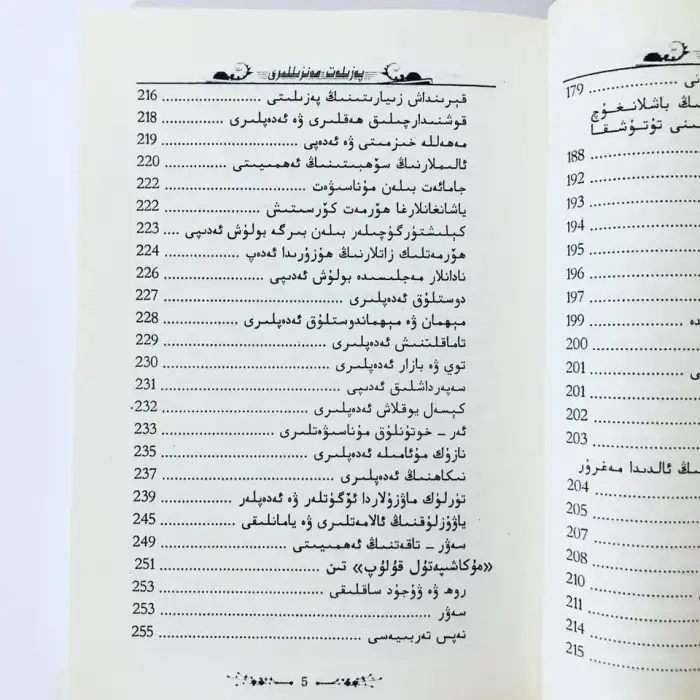 پەزىلەت مەنزىللىرى
قېرىنداش زىيارىتىنىڭ پەزىلىتى ........ 216
قوشنىدارچىلىق ھەقلىرى ۋە ئەدەپلىرى ........ 218
مەھەللە خىزمىتى ۋە ئەدەپى ........ 219
ئالىملارنىڭ سۆھبىتىنىڭ ئەھمىيىتى ........ 220
جامائەت بىلەن مۇناسىۋەت ........ 222
ياشانغانلارغا ھۆرمەت كۆرسىتىش ........ 222
كېلىشتۈرگۈچىلەر بىلەن بىرگە بولۇش ئەدىپى .... 223
ھۆرمەتلىك زاتلارنىڭ ھۇزۇرىدا ئەدەپ ........ 224
نادانلار مەجلىسىدە بولۇش ئەدىپى ........ 226
دوستلۇق ئەدەپلىرى ........ 227
مېھمان ۋە مېھماندوستلۇق ئەدەپلىرى ........ 228
تاماقلىنىش ئەدەپلىرى ........ 229
توي ۋە بازار ئەدەپلىرى ........ 230
سەپەرداشلىق ئەدىپى ........ 231
كېسەل يوقلاش ئەدەپلىرى ........ 232
ئەر - خوتۇنلۇق مۇناسىۋەتلىرى ........ 233
نازۇك مۇئامىلە ئەدەپلىرى ........ 235
نىكاھنىڭ ئەدەپلىرى ........ 237
تۈرلۈك ماۋزۇلاردا ئۆگۈتلەر ۋە ئەدەپلەر ........ 239
ياۋۇزلۇقنىڭ ئالامەتلىرى ۋە يامانلىقى ........ 245
سەۋر - تاقەتنىڭ ئەھمىيىتى ........ 249
«مۇكاشىپەتۇل قۇلۇپ» تىن ........ 251
روھ ۋە ۋۇجۇد ساقلىقى ........ 253
سەۋر ........ 253
نەپس تەربىيەسى ........ 255
5
179
ىڭ باشلانغۇچ
ىنى تۇتۇشقا
188
192
193
194
195
196
197
199
200
201
201
202
203
ىڭ ئالدىدا مەغرۇر
204
205
207
208
210
211
214
215